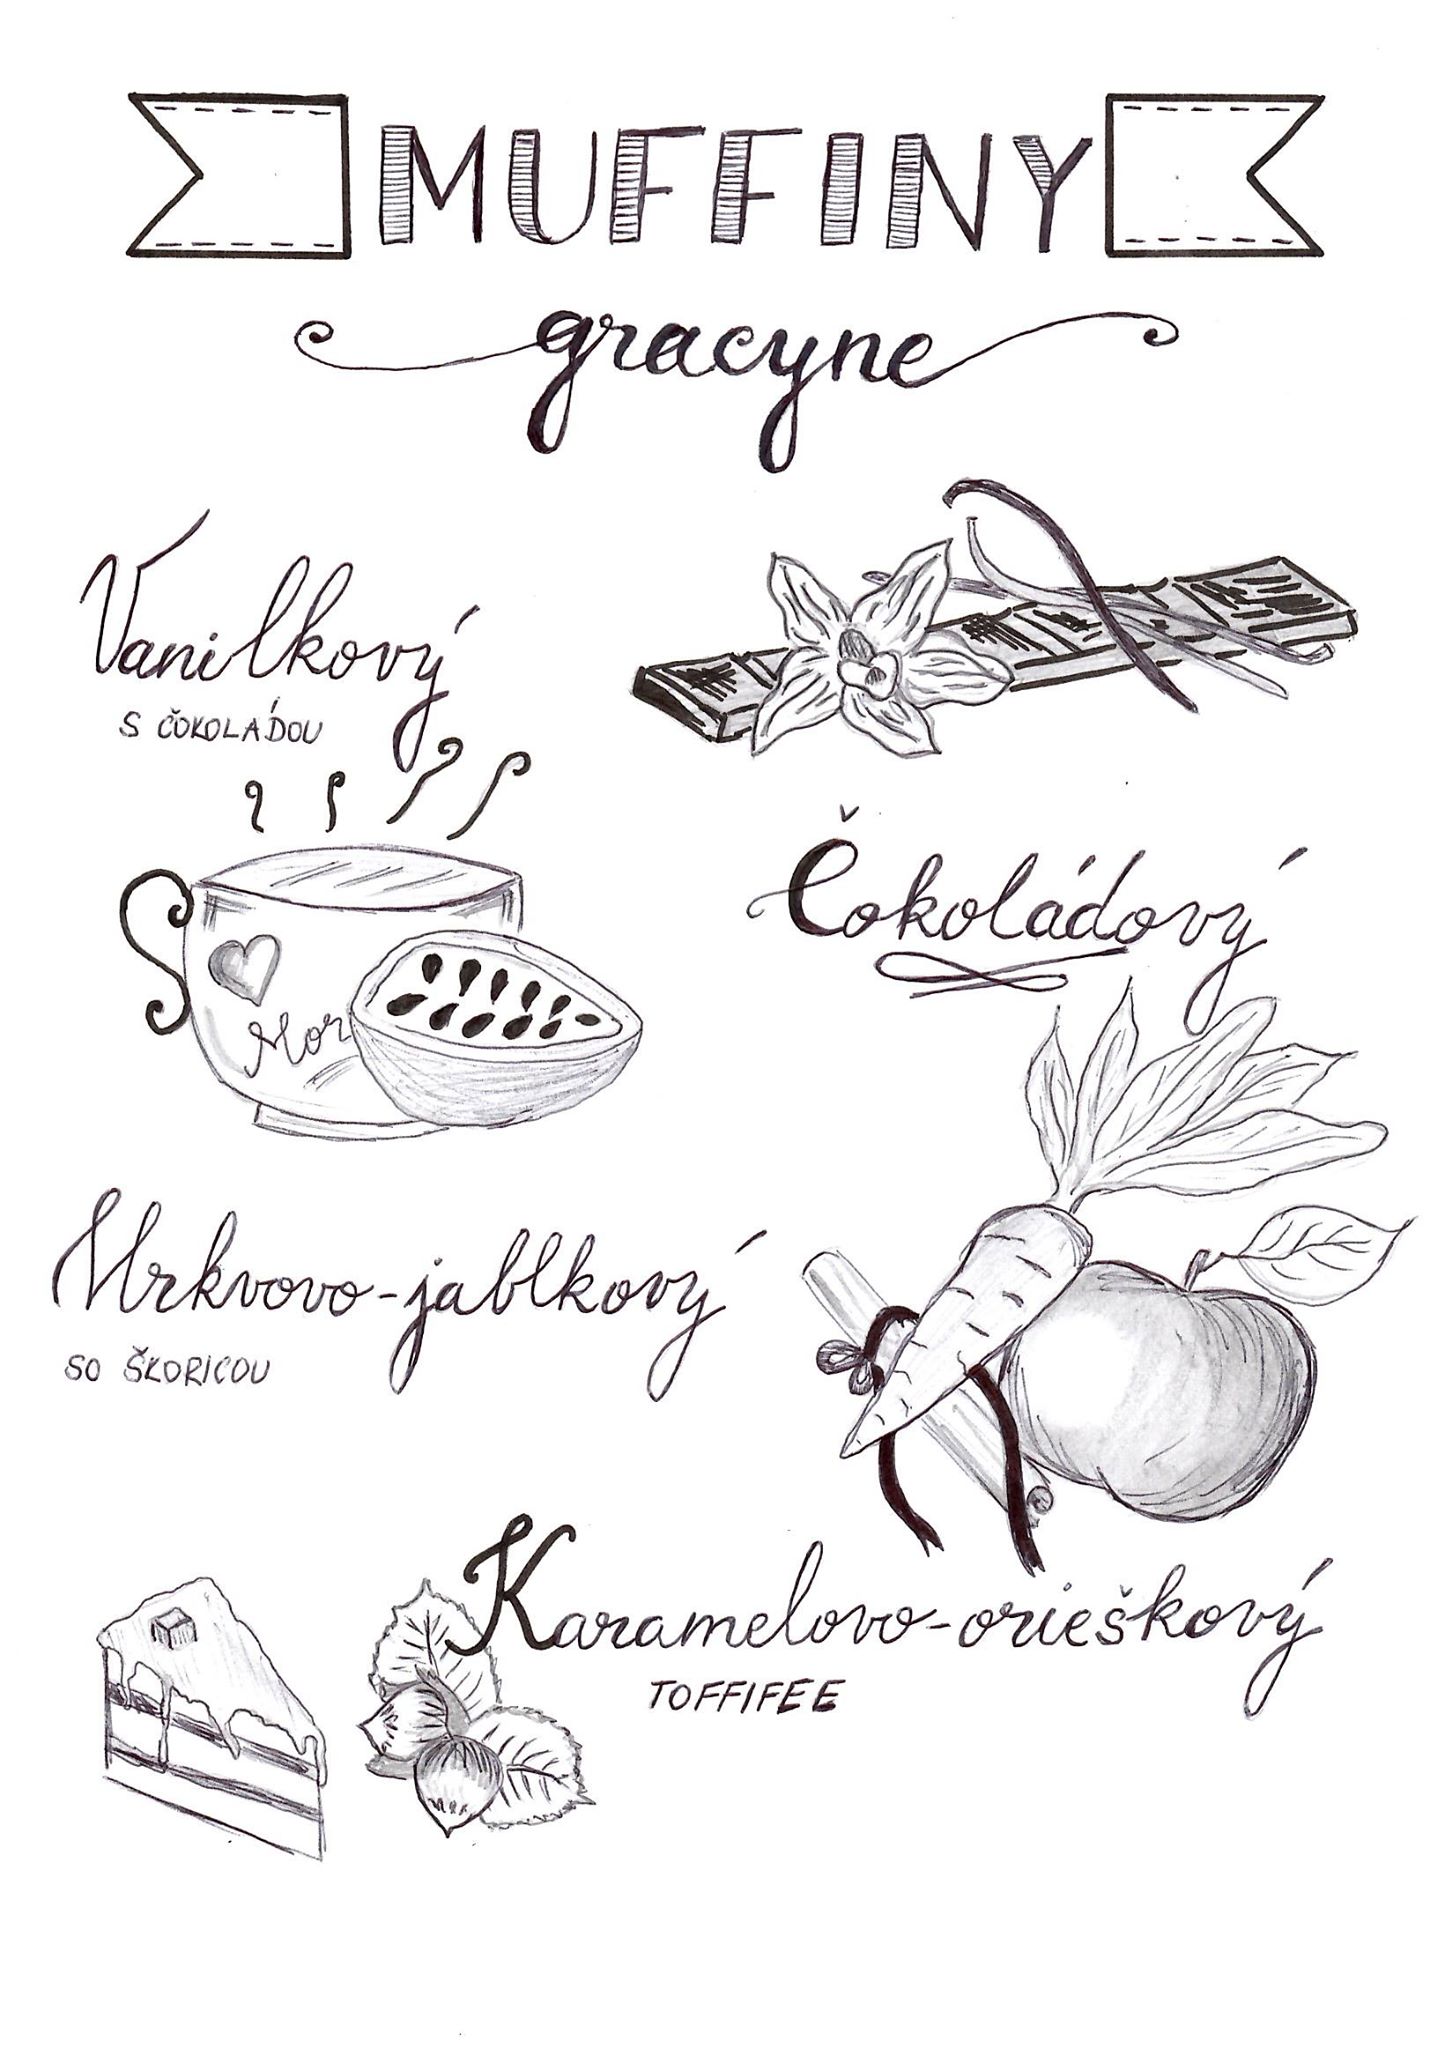 MUFFINY
gracyne
Vanilkový
S ČOKOLÁDOU
Čokoládový
Mor
Mrkvovo-jablkový
SO ŠKORICOU
Karamelovo-orieškový
TOFFIFEE